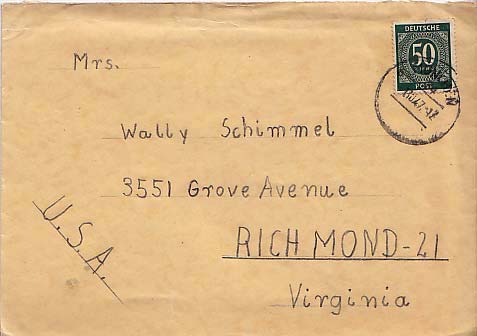 DEUTSCHE
50
POST
Mrs.
Wally Schimmel
3551 Grove Avenue
RICHMOND-21
Virginia
U.S.A.